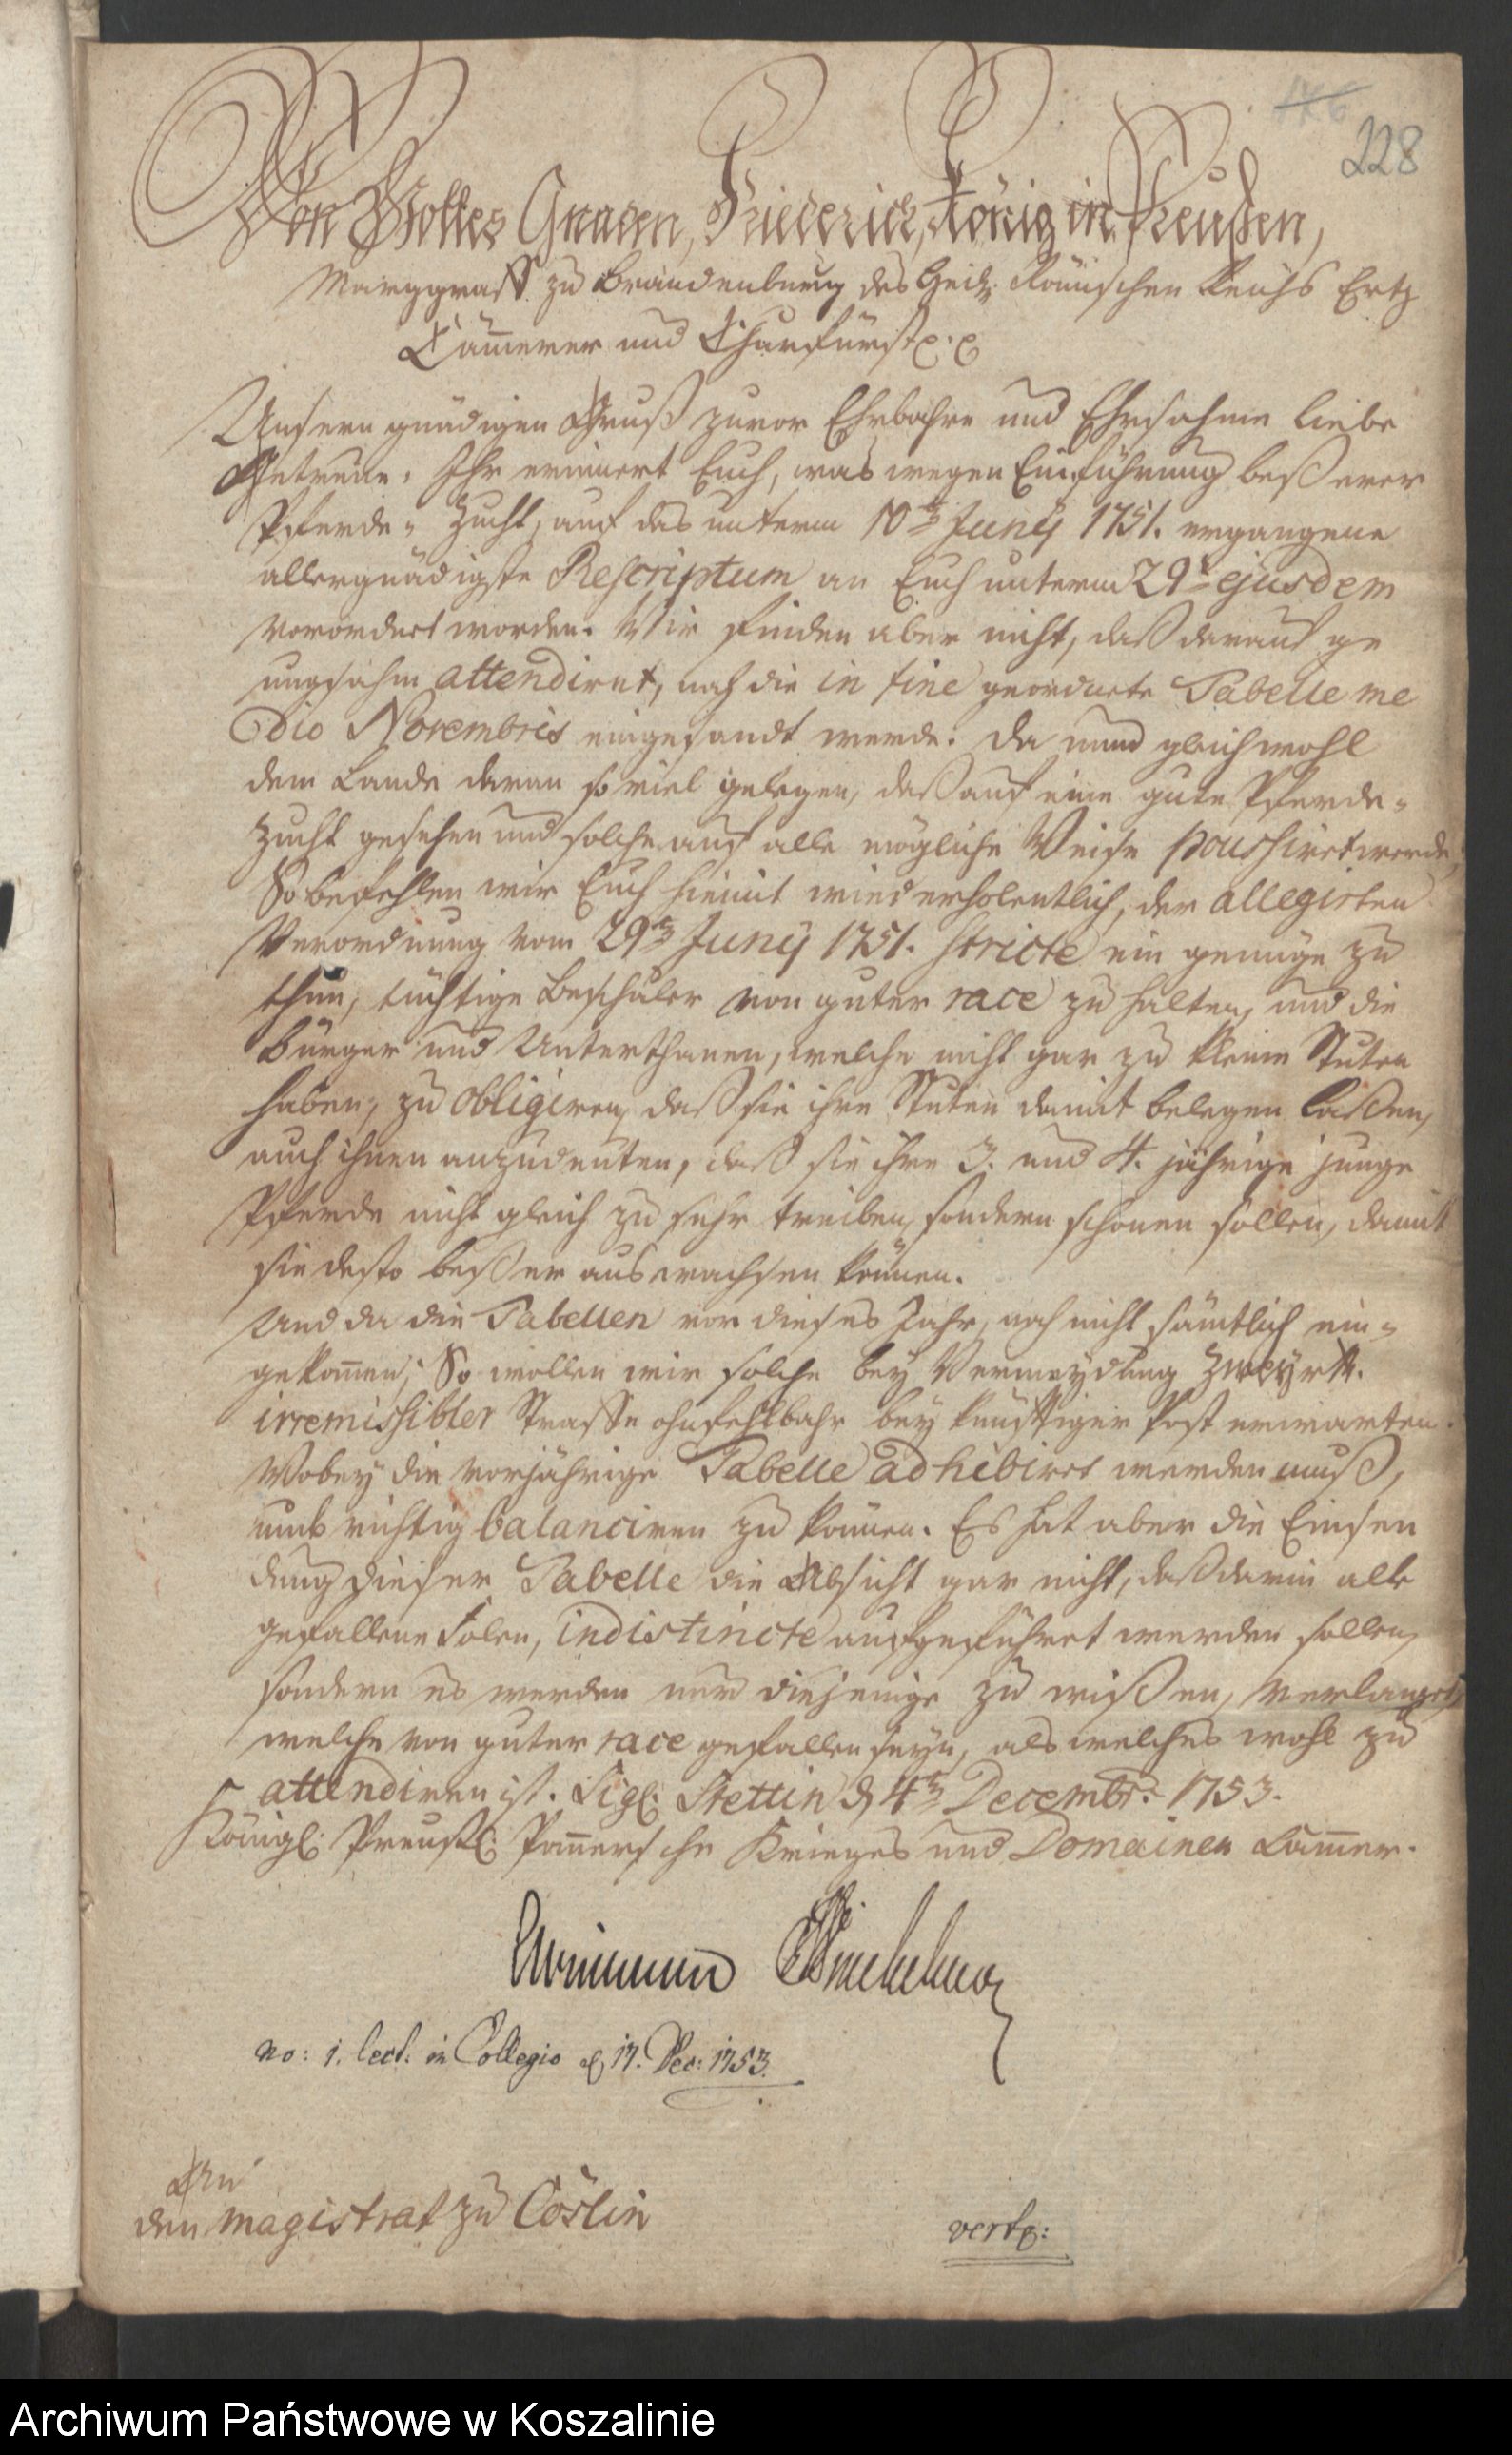 176
228
Von Gottes Gnaden, Friederich, König in Preußen,
Marggraff zu Brandenburg des Heil. Römischen Reichs Ertz
Cämmerer und Churfürst p. p
Unsern gnädigen Gruß zuvor Ehrbahre und Ehrsahme liebe
Getreue. Ihr erinnert Euch, was wegen Einführung beßerer
Pferde-Zucht, auf das unterm 10t Junÿ 1751. ergangene
allergnädigste Rescriptum an Euch unterm 29t ejusdem
verordnet worden. Wir finden aber nicht, daß darauf ge
nugsahm attendiret, noch die in fine geordnete Tabelle me
dio Novembris eingesandt werde. Da nund gleichwohl
dem Lande daran so viel gelegen, daß auf eine gute Pferde-
Zucht gesehen und solche auf alle mögliche Weise poussiret werde,
So befehlen wir Euch hiemit wiederholentlich, der allegirten
Verordnung vom 29t Junÿ 1751. stricte ein genüge zu
thun, tüchtige Beschäler von guter race zu halten, und die
Bürger und Unterthanen, welche nicht gar zu kleine Stuten
haben, zu obligiren, daß sie ihre Stuten damit belegen laßen,
auch ihnen anzudeuten, daß sie ihre 3. und 4. jährige junge
Pferde nicht gleich zu sehr treiben, sondern schonen sollen, damit
sie desto beßer auswachsen können.
Und da die Tabellen vor dieses Jahr, noch nicht sämtlich ein-
gekommen; So wollen wir solche bey Vermeydung Zwey rt.
irremissibler Straffe ohnfehlbahr bey künfftiger Post erwarten.
Wobey die vorjährige Tabelle adhibiret werden muß,
umb richtig balanciren zu können. Es hat aber die Einsen
dung dieser Tabelle die Absicht gar nicht, daß darin alle
gefallene Folen, indistincte aufgeführet werden sollen,
sondern es werden nur diejenige zu wißen, verlanget,
welche von guter race gefallen seyn, als welches wohl zu
attendiren ist. Sigl. Stettin d 4t Decembr. 1753.
Königl. Preußl. Pommersche Krieges und Domainen Cammer.
no: 1. lect. in Collegio d 17. Dec: 1753.
An
den Magistrat zu Cöslin
vertz:
Archiwum Państwowe w Koszalinie